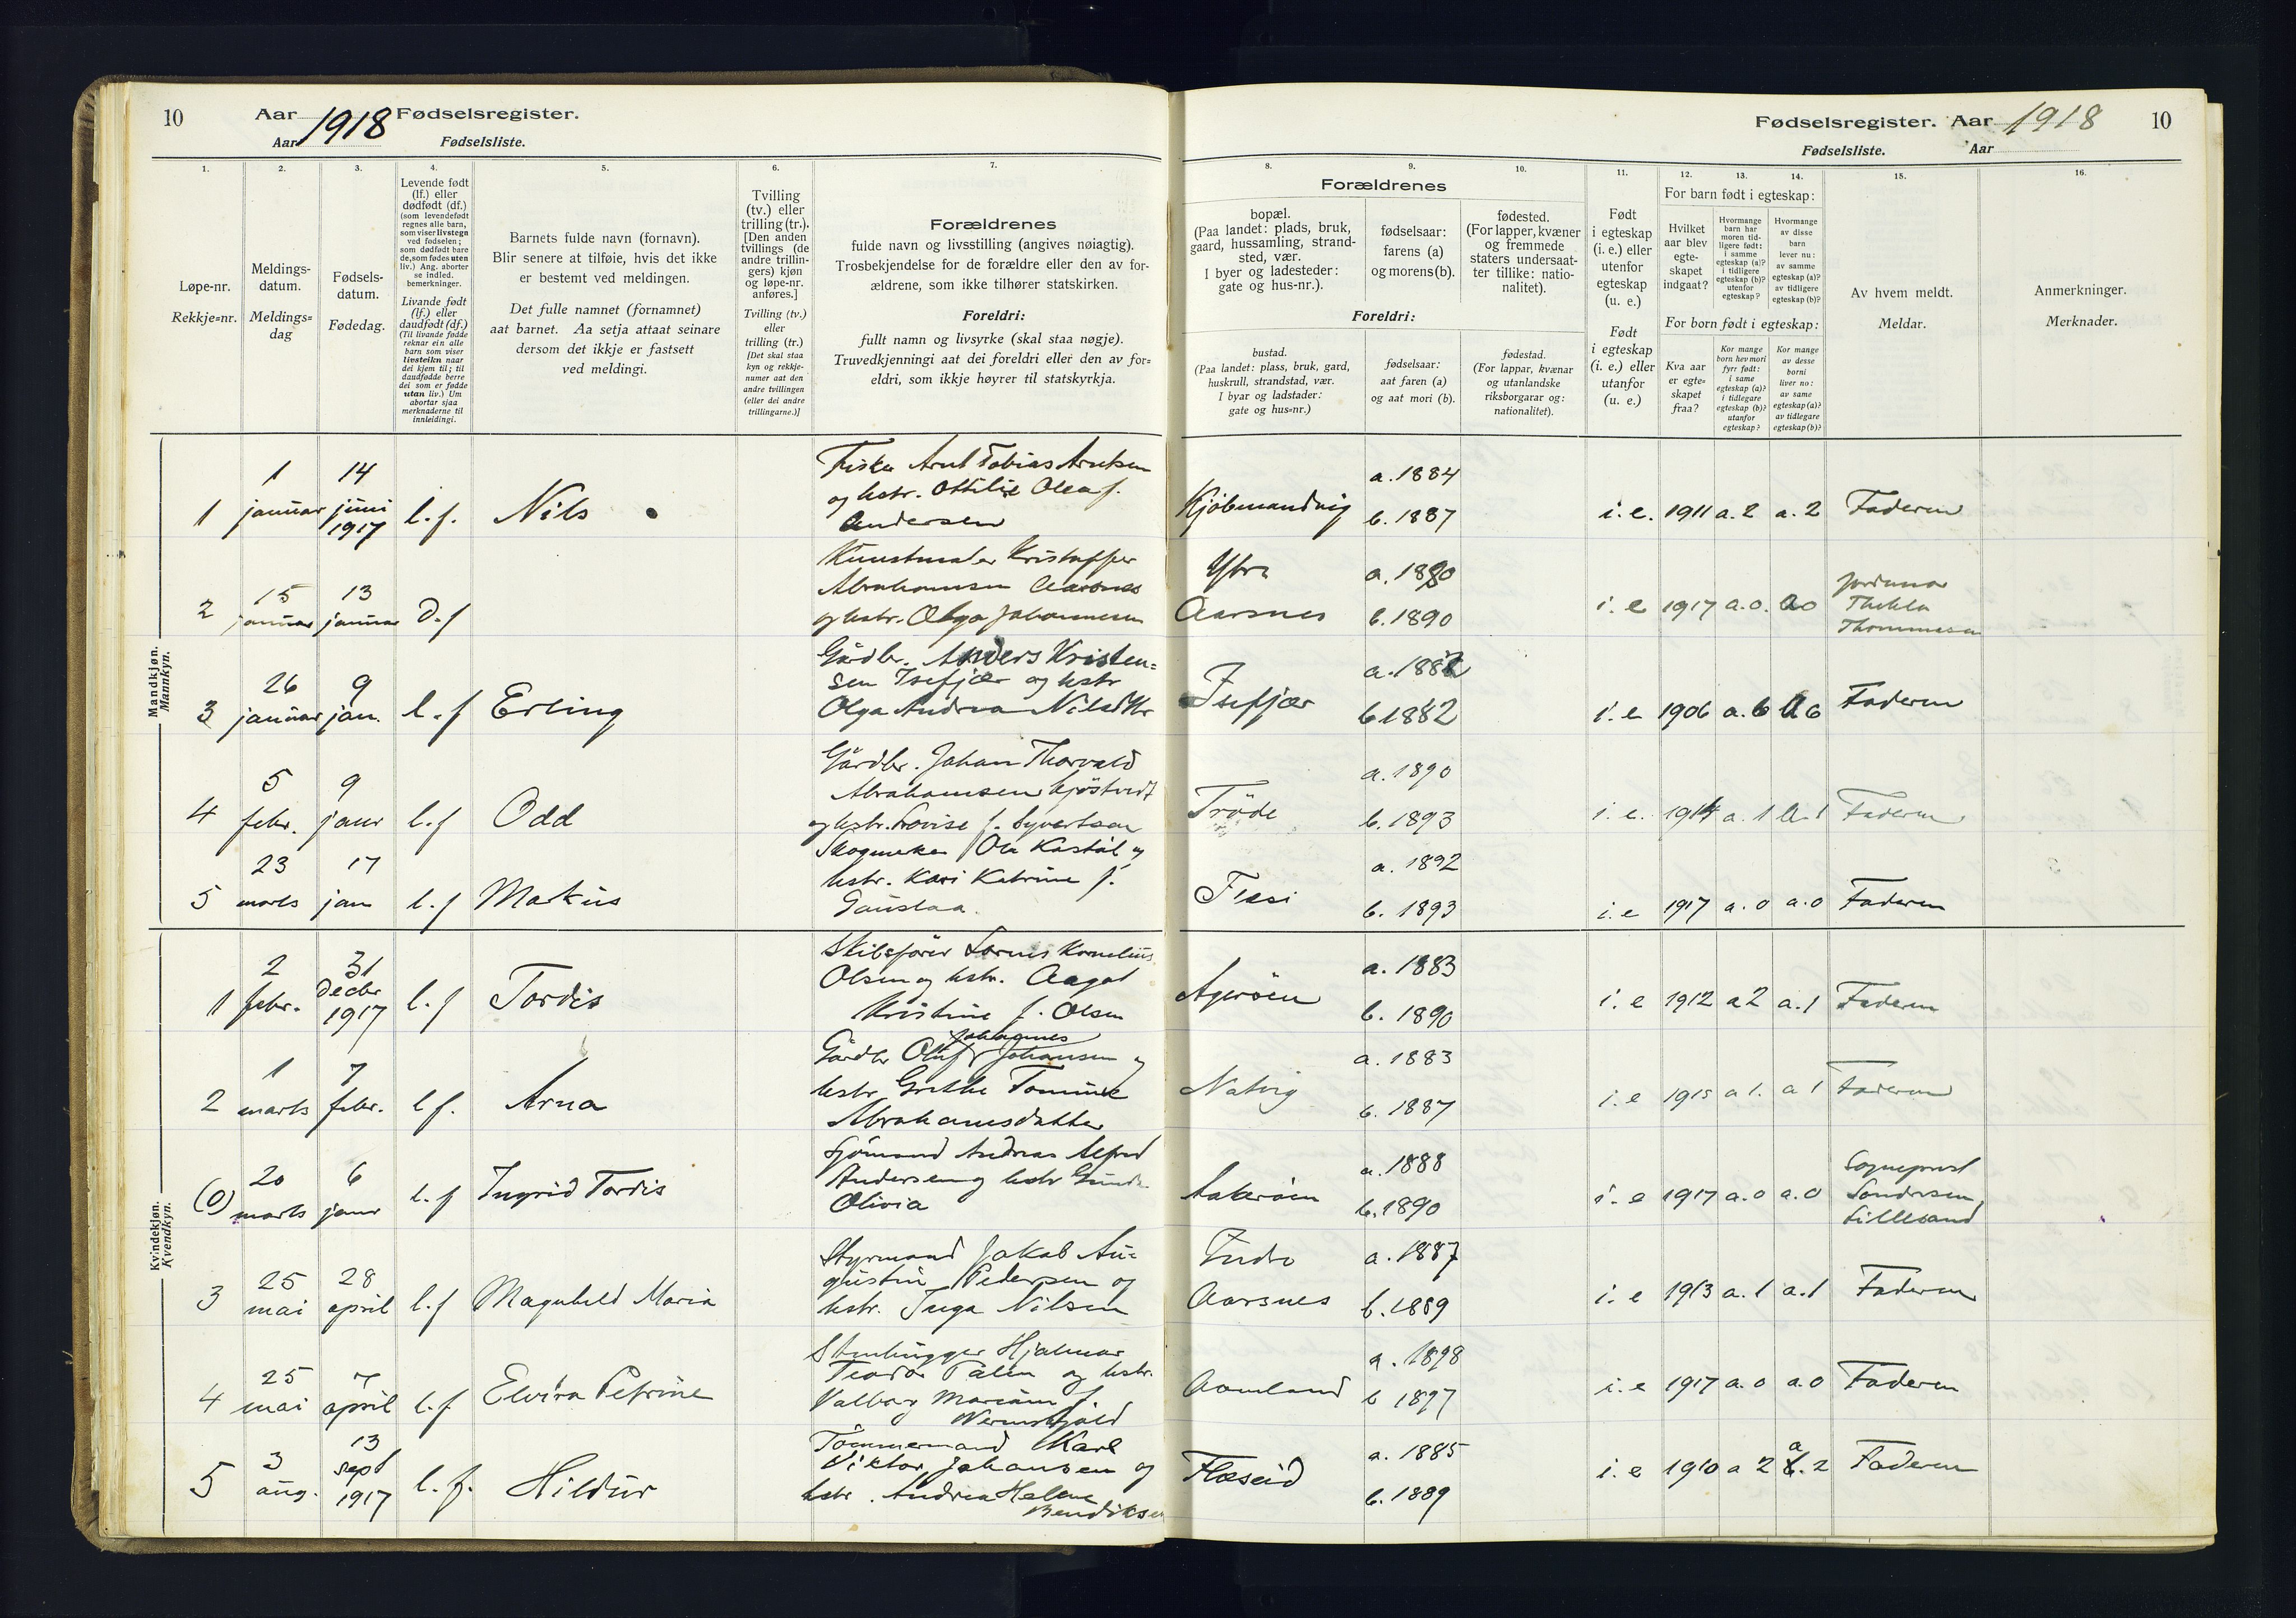 10
Aar 1918 Fødselsregister.
Aar Fødselsliste.
Fødselsregister. Aar 1918
10
Fødselsliste. Aar
1. 2. 3. 4. 5. 6. 7. 8. 9. 10. 11. 12. 13. 14. 15. 16.
Løpe-nr.
Rekkje=nr.
Meldings-
datum.
Meldings=
dag
Fødsels-
datum.
Fødedag.
Levende født
(lf.) eller
dødfødt (df.)
(som levendefødt
regnes alle barn,
som viser livstegn
ved fødselen;
som dødfødt bare
de, som fødes uten
liv.) Ang. aborter
se indled.
bemerkninger.
Livande født
(lf.) eller
daudfødt (df.)
(Til livande fødde
reknar ein alle
barn som viser
livsteikn naar
dei kjem til; til
daudfødde berre
dei som er fødde
utan liv.) Um
abortar sjaa
merknaderne til
innleidingi.
Barnets fulde navn (fornavn).
Blir senere at tilføie, hvis det ikke
er bestemt ved meldingen.
Det fulle namnet (fornamnet)
aat barnet. Aa setja attaat seinare
dersom det ikkje er fastsett
ved meldingi.
Tvilling
(tv.) eller
trilling (tr.).
[Den anden
tvillings (de
andre trillin-
gers) kjøn
og løpe-nr.
anføres.]
Tvilling (tv.)
eller
trilling (tr.)
[Det skal staa
kyn og rekkje-
numer aat den
andre tvillingen
(eller dei andre
trillingarne.)]
Forældrenes
fulde navn og livsstilling (angives nøiagtig).
Trosbekjendelse for de forældre eller den av for-
ældrene, som ikke tilhører statskirken.
Foreldri:
fullt namn og livsyrke (skal staa nøgje).
Truvedkjenningi aat dei foreldri eller den av for=
eldri, som ikkje høyrer til statskyrkja.
Forældrenes
bopæl.
(Paa landet: plads, bruk,
gaard, hussamling, strand-
sted, vær.
I byer og ladesteder:
gate og hus-nr.).
fødselsaar:
farens (a)
og morens (b).
fødested.
(For lapper, kvæner
og fremmede
staters undersaat-
ter tillike: natio-
nalitet).
Foreldri:
bustad.
(Paa landet: plass, bruk, gard,
huskrull, strandstad, vær.
I byar og ladstader:
gate og hus=nr.)
fødselsaar:
aat faren (a)
og aat mori (b).
fødestad.
(For lappar, kvænar
og utanlandske
riksborgarar og:
nationalitet).
Født
i egteskap
(i. e.) eller
utenfor
egteskap
(u. e.)
Født
i egteskap
(i. e.) eller
utanfor
(u. e.)
For barn født i egteskap:
Hvilket
aar blev
egte-
skapet
indgaat?
Hvormange
barn har
moren tid-
ligere født:
i samme
egteskap (a)?
i tidligere
egteskap (b)?
utenfor
egteskap?
Hvormange
av disse
barn
lever nu:
av samme
egteskap (a)?
av tidligere
egteskap (b)?
For born født i egteskap:
Kva aar
er egte=
skapet
fraa?
Kor mange
born hev mori
fyrr født:
i same
egteskap (a)?
i tidlegare
egteskap (b)?
utanfor
egteskap?
Kor mange
av desse
borni
liver no:
av same
egteskap (a)?
av tidlegare
egteskap (b)?
Av hvem meldt.
Meldar.
Anmerkninger.
Merknader.
Mandkjøn.
Mannkyn.
1 1 januar 14 juni 1917 l. f. Nils
Fisker Arnt Tobias Arntsen
og hstr. Ottilie Olea f.
Andersen
Kjøbmandvig a. 1884 b. 1887 i. e. 1911 a. 2 a. 2 Faderen
2 15 januar 13 januar d. f
Kunstmaler Kristoffer
Abrahamsen Aarsnes
og hstr. Olga Johannesen
Ytre
Aarsnes a. 1880 b. 1890 i. e 1917 a. 0. a 0
Jordmor
Thekla
Thommesen
3 26 januar 9 jan. l. f Erling
Gårdbr. Anders Kristen=
sen Isefjær og hstr
Olga Andrea Nilsdtr
Isefjær a. 1882 b 1882 i. e 1906 a. 6 a 6 Faderen
4 5 febr. 9 janr l. f Odd
Gårdbr. Johan Thorvald
Abrahamsen Kjøstvedt
og hstr. Lovise f. Syvertsen
Trøde a. 1890 b. 1893 i. e. 1914 a. 1 a. 1 Faderen
5 23 marts 17 jan l. f Markus
Ole Kastål og
hstr. Kari Katrine f.
Gauslaa.
a. 1892 b. 1893 i. e 1917 a. 0 a. 0 Faderen
Kvindekjøn.
Kvendkyn.
1 2 febr. 31 decbr 1917 l. f Tordis
Skibsfører Kornelius
Olsen og hstr. Aagot
Kristine f. Olsen
Agerøen a. 1883 b. 1890 i. e 1912 a 2 a. 1 Faderen
2 1 marts 7 febr. l f. Arna
Johannes
Gårdbr Oluf Johansen og
hstr Grethe Tomine
Abrahamsdatter
Natvig a. 1883 b. 1887 i. e 1915 a 1. a 1 Faderen
(0) 20 marts 6 janr l. f Ingrid Tordis
Sjømand Andreas Alfred
Andersen og hstr
Olivia
Aakerøen a. 1888 b. 1890 i. e 1917 a. 0 a. 0
Sogneprest
Sandersen,
Lillesand
3 25 mai 28 april l. f Magnhild Maria
Styrmand Jakob Au=
gustin Pedersen og
hstr. Inga Nilsen
Indre
Aarsnes a. 1887 b. 1889 i. e 1913 a. 1 a. 1 Faderen
4 25 mai 7 april l. f. Elvira Petrine
Stenhugger Hjalmar
Teodor Palen og hstr.
Valborg f.
Aamland a. 1898 b 1897 i. e 1917 a. 0 a. 0 Faderen
5 3 aug. 13 sept 1917 l. f. Hildur
Tømmermand Karl
Viktor Johansen og
hstr. Andrea Helene
Bendiksen
a. 1885 b. 1889 i. e 1910 a 2 a. 2 Faderen